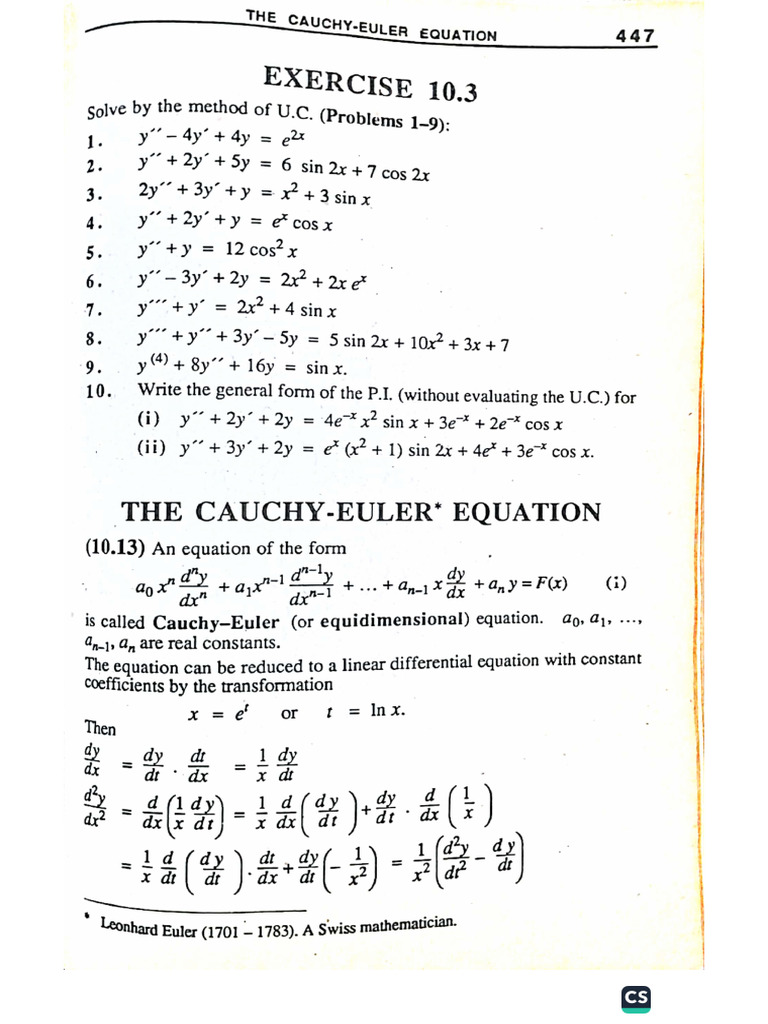 THE CAUCHY-EULER EQUATION 447
EXERCISE 10.3
Solve by the method of U.C. (Problems 1–9):
1. y´´ – 4y´ + 4y = e²ˣ
2. y´´ + 2y´ + 5y = 6 sin 2x + 7 cos 2x
3. 2y´´ + 3y´ + y = x² + 3 sin x
4. y´´ + 2y´ + y = eˣ cos x
5. y´´ + y = 12 cos² x
6. y´´ – 3y´ + 2y = 2x² + 2x eˣ
7. y´´´ + y´ = 2x² + 4 sin x
8. y´´´ + y´´ + 3y´ – 5y = 5 sin 2x + 10x² + 3x + 7
9. y⁽⁴⁾ + 8y´´ + 16y = sin x.
10. Write the general form of the P.I. (without evaluating the U.C.) for
(i) y´´ + 2y´ + 2y = 4e⁻ˣ x² sin x + 3e⁻ˣ + 2e⁻ˣ cos x
(ii) y´´ + 3y´ + 2y = eˣ (x² + 1) sin 2x + 4eˣ + 3e⁻ˣ cos x.
THE CAUCHY-EULER* EQUATION
(10.13) An equation of the form
a₀ xⁿ dⁿy/dxⁿ + a₁xⁿ⁻¹ dⁿ⁻¹y/dxⁿ⁻¹ + ... + aₙ₋₁ x dy/dx + aₙ y = F(x) (i)
is called Cauchy–Euler (or equidimensional) equation. a₀, a₁, ...,
aₙ₋₁, aₙ are real constants.
The equation can be reduced to a linear differential equation with constant
coefficients by the transformation
x = eᵗ or t = ln x.
Then
dy/dx = dy/dt . dt/dx = 1/x dy/dt
d²y/dx² = d/dx (1/x dy/dt) = 1/x d/dx (dy/dt) + dy/dt . d/dx (1/x)
= 1/x d/dt (dy/dt) . dt/dx + dy/dt (– 1/x²) = 1/x² (d²y/dt² – dy/dt)
* Leonhard Euler (1701 – 1783). A Swiss mathematician.
CS